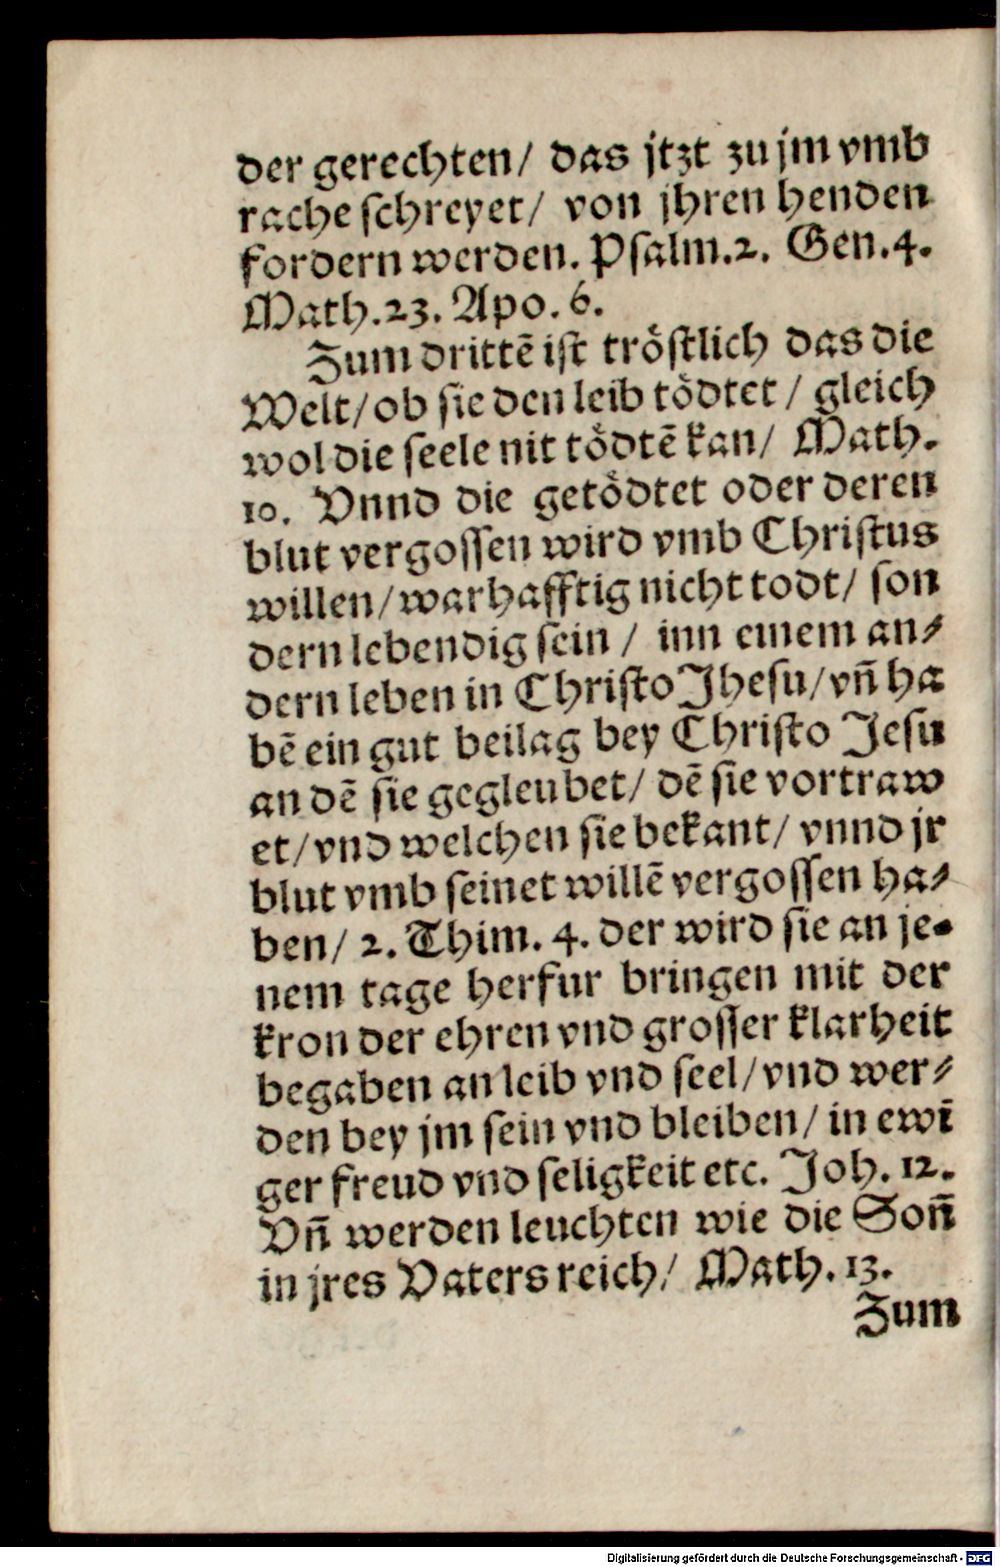 der gerechten/ das jtzt zu jm vmb
rache schreyet/ von jhren henden
fordern werden. Psalm.2. Gen.4.
Math.23. Apo.6.
Zum drittē ist tröstlich das die
Welt/ob sie den leib tödtet/ gleich
wol die seele nit tödtē kan/ Math.
10. Vnnd die getödtet oder deren
blut vergossen wird vmb Christus
willen/warhafftig nicht todt/ son
dern lebendig sein/ inn einem an⸗
dern leben in Christo Jhesu/vn̄ ha
bē ein gut beilag bey Christo Jesu
an dē sie gegleubet/ dē sie vortraw
et/vnd welchen sie bekant/ vnnd jr
blut vmb seinet willē vergossen ha⸗
ben/ 2. Thim. 4. der wird sie an je⸗
nem tage herfur bringen mit der
kron der ehren vnd grosser klarheit
begaben an leib vnd seel/vnd wer⸗
den bey jm sein vnd bleiben/ in ewī
ger freud vnd seligkeit etc. Joh. 12.
Vn̄ werden leuchten wie die Son̄
in jres Vaters reich/ Math. 13.
Zum
Digitalisierung gefördert durch die Deutsche Forschungsgemeinschaft - DFG